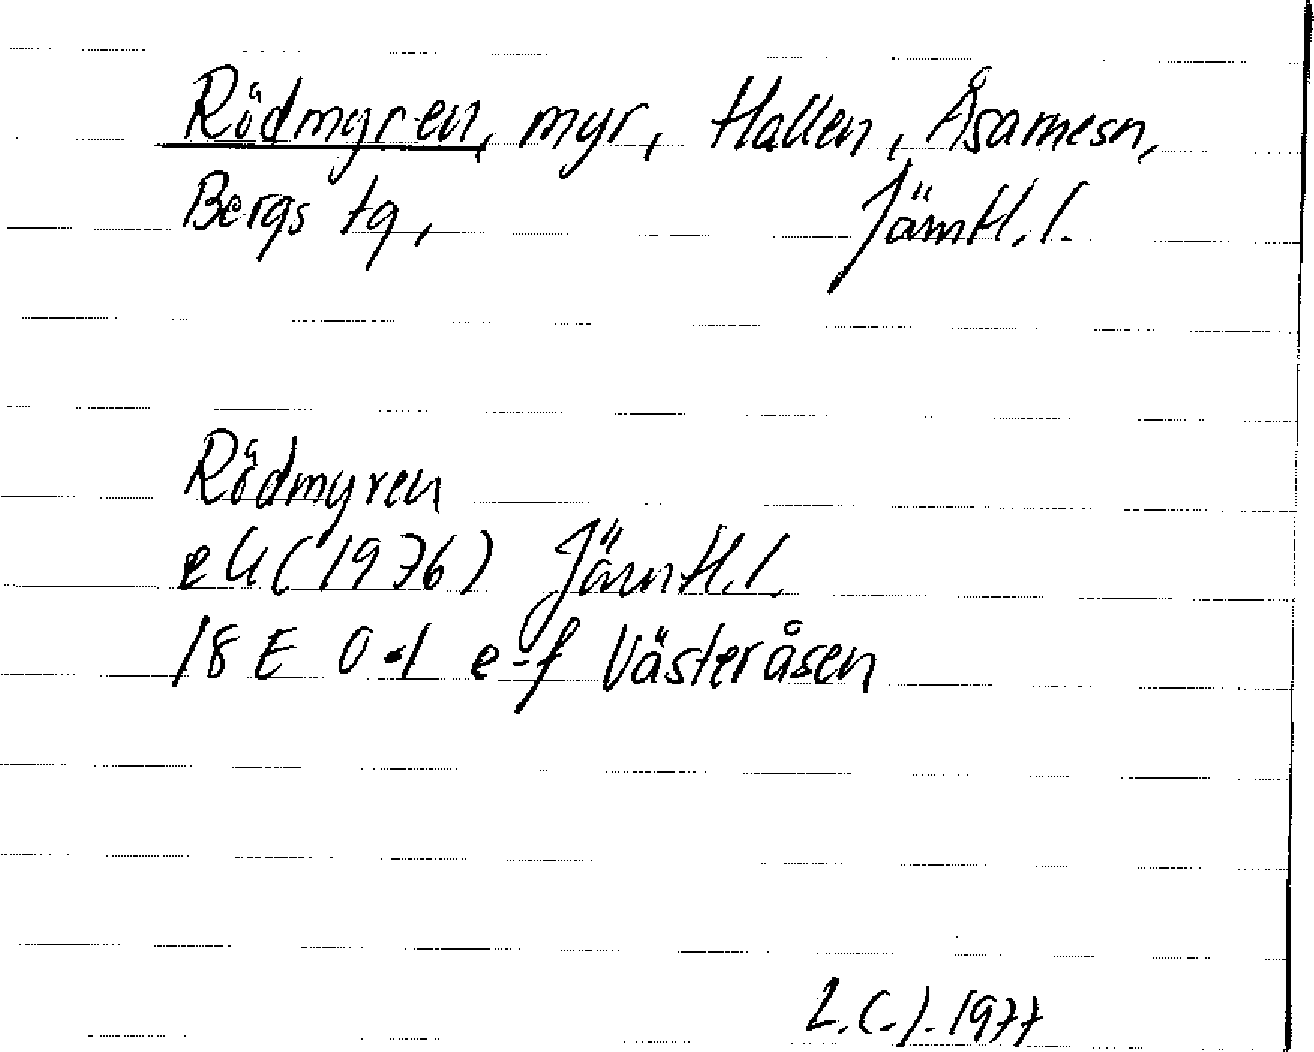 Rödmyren, myr, Hallen, Åsarnesn,
Bergs tg, Jämtl. l.
Rödmyren
eK (1976) Jämtl. l.
18 E 0-1 e-f Västeråsen
L.C.J. 1977